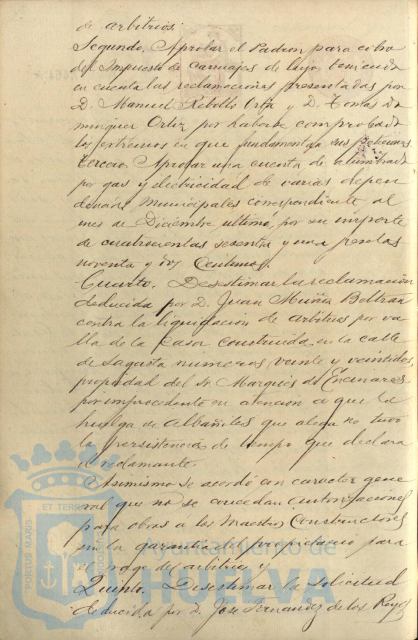 de arbitrios.
Segundo. Aprobar el Padron para cobro
del Impuesto de carruajes de lujo teniendo
en cuenta las reclamaciones presentadas por
D. Manuel Rebollo Orta y D. Tomas Do
minguez Ortiz por haberse comprobado
los extremos en que fundamentan sus peticiones
Tercero. Aprobar una cuenta de alumbrado
por gas y electricidad de varias depen
dencias municipales correspondiente al
mes de Diciembre ultimo, por su importe
de cuatrocientas sesenta y una pesetas
noventa y dos Centimos.
Cuarto. Desestimar la reclamacion
deducida por D. Juan Muñoz Beltran
contra la liquidacion de arbitrios por va
lla de la casa construida en la calle
de Sagasta numeros veinte y veintidos,
propiedad del Sr Marques de
por improcedente en atencion a que la
huelga de albañiles que alega no tuvo
la persistencia de tiempo que declara
el reclamante.
Asimismo se acordó con caracter gene
ral que no se concedan autorizaciones
para obras a los Maestros Constructores
sin la garantia del propietario para
el pago del arbitrio, y
Quinto. Desestimar la solicitud
deducida por D. Jose Fernandez de los Reyes
PORTUS MARIS ET TERRAE CUSTODIA
Ayuntamiento de
HUELVA